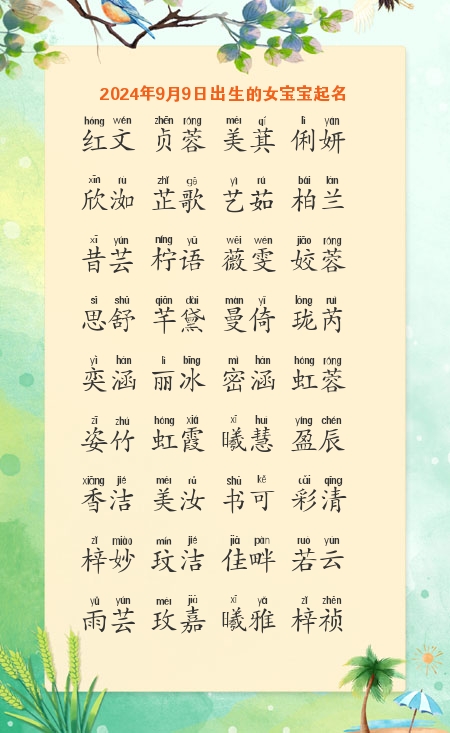 2024年9月9日出生的女宝宝起名
hóng wén zhēn róng měi qí lì yán
红文 贞蓉 美萁 俐妍
xīn rù zhǐ gē yì rú bǎi lán
欣洳 芷歌 艺茹 柏兰
xī yún níng yǔ wēi wén jiāo róng
昔芸 柠语 薇雯 姣蓉
sī shū qiān dài màn yǐ lóng ruì
思舒 芊黛 曼倚 珑芮
yì hán lì bīng mì hán hóng róng
奕涵 丽冰 密涵 虹蓉
zī zhú hóng xiá xī huì yíng chén
姿竹 虹霞 曦慧 盈辰
xiāng jié měi rǔ shū kě cǎi qīng
香洁 美汝 书可 彩清
zǐ miào mín jié jiā pàn ruò yún
梓妙 玟洁 佳畔 若云
yǔ yún méi jiā xī yǎ zǐ zhēn
雨芸 玫嘉 曦雅 梓祯